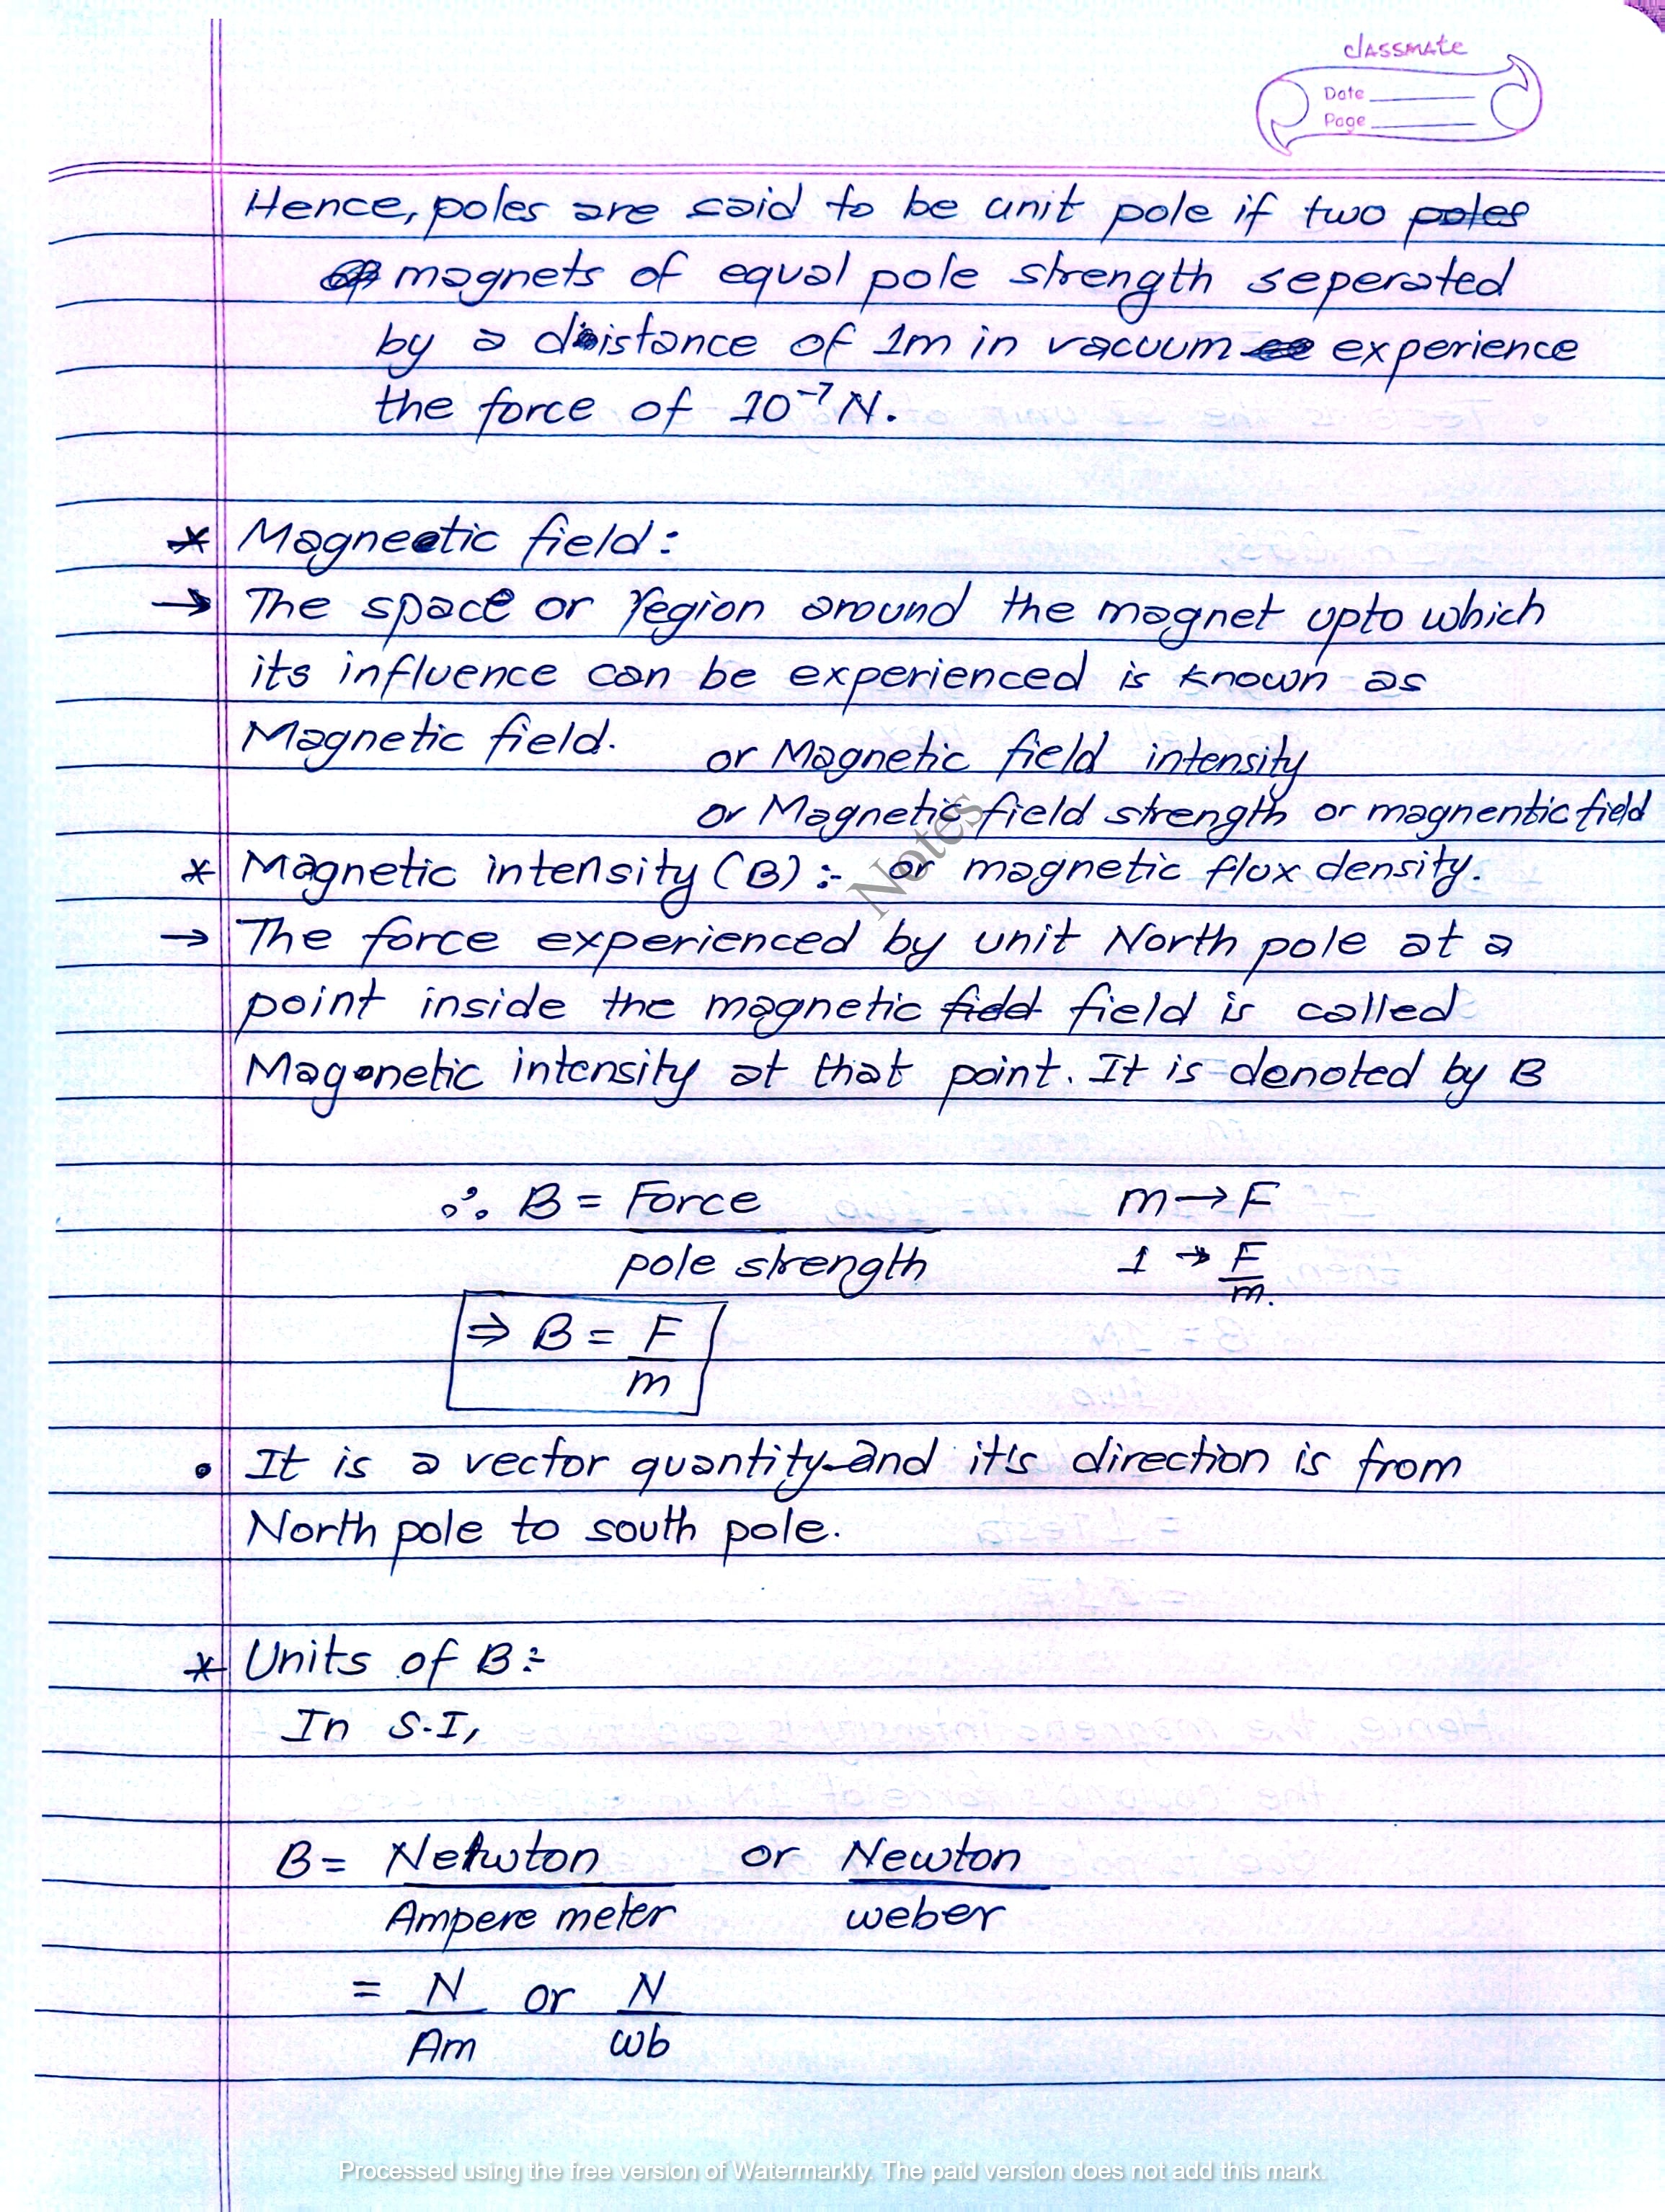 classmate
Date
Page
Hence, poles are said to be unit pole if two poles
magnets of equal pole strength seperated
by a distance of 1m in vacuum experience
the force of 10⁻⁷ N.
* Magnetic field:
→ The space or region around the magnet upto which
its influence can be experienced is known as
Magnetic field.
or Magnetic field intensity
or Magnetic field strength or magnentic field
* Magnetic intensity (B) :- or magnetic flux density.
Notes
→ The force experienced by unit North pole at a
point inside the magnetic field field is called
Magnetic intensity at that point. It is denoted by B
∴ B = Force m → F
pole strength 1 → F
m.
⇒ B = F
m
• It is a vector quantity and it's direction is from
North pole to south pole.
* Units of B:-
In S.I,
B = Newton or Newton
Ampere meter weber
= N or N
Am wb
Processed using the free version of Watermarkly. The paid version does not add this mark.